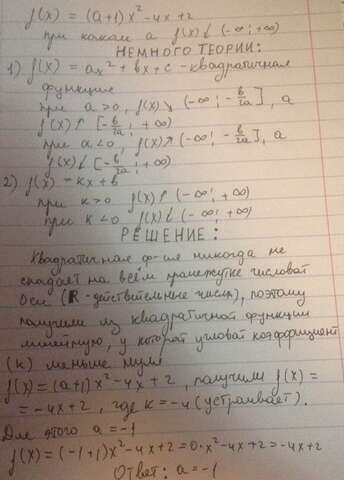 f(x) = (a+1)x² - 4x + 2
при каком a f(x)↓(-∞; +∞)
НЕМНОГО ТЕОРИИ:
1) f(x) = ax² + bx + c - квадратичная
функция
при a > 0, f(x)↘(-∞; -b/2a], а
f(x)↗[-b/2a; +∞)
при a < 0, f(x)↗(-∞; -b/2a], а
f(x)↓[-b/2a; +∞)
2) f(x) = kx + b
при k > 0 f(x)↗(-∞; +∞)
при k < 0 f(x)↓(-∞; +∞)
РЕШЕНИЕ:
Квадратичная ф-ия никогда не
спадает на всём промежутке числовой
оси (R - действительные числа), поэтому
получили из квадратичной функции
линейную, у которой угловой коэффициент
(k) меньше нуля
f(x) = (a+1)x² - 4x + 2, получили f(x) =
= -4x + 2, где k = -4 (устраивает).
Для этого a = -1
f(x) = (-1+1)x² - 4x + 2 = 0·x² - 4x + 2 = -4x + 2
Ответ: a = -1